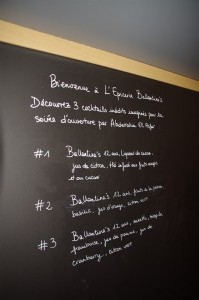 Bienvenue à L'Epicerie Ballantine's
Découvrez 3 cocktails inédits imaginés pour la
soirée d'ouverture par Abderrahim El
#1 Ballantine's 12 ans, Liqueur de cacao,
jus de citron, thé infusé aux fruits rouges
et au cacao
#2 Ballantine's 12 ans, fruit de la passion,
basilic, jus d'orange, citron vert
#3 Ballantine's 12 ans,
framboise, jus de pomme, jus de
cranberry, citron vert